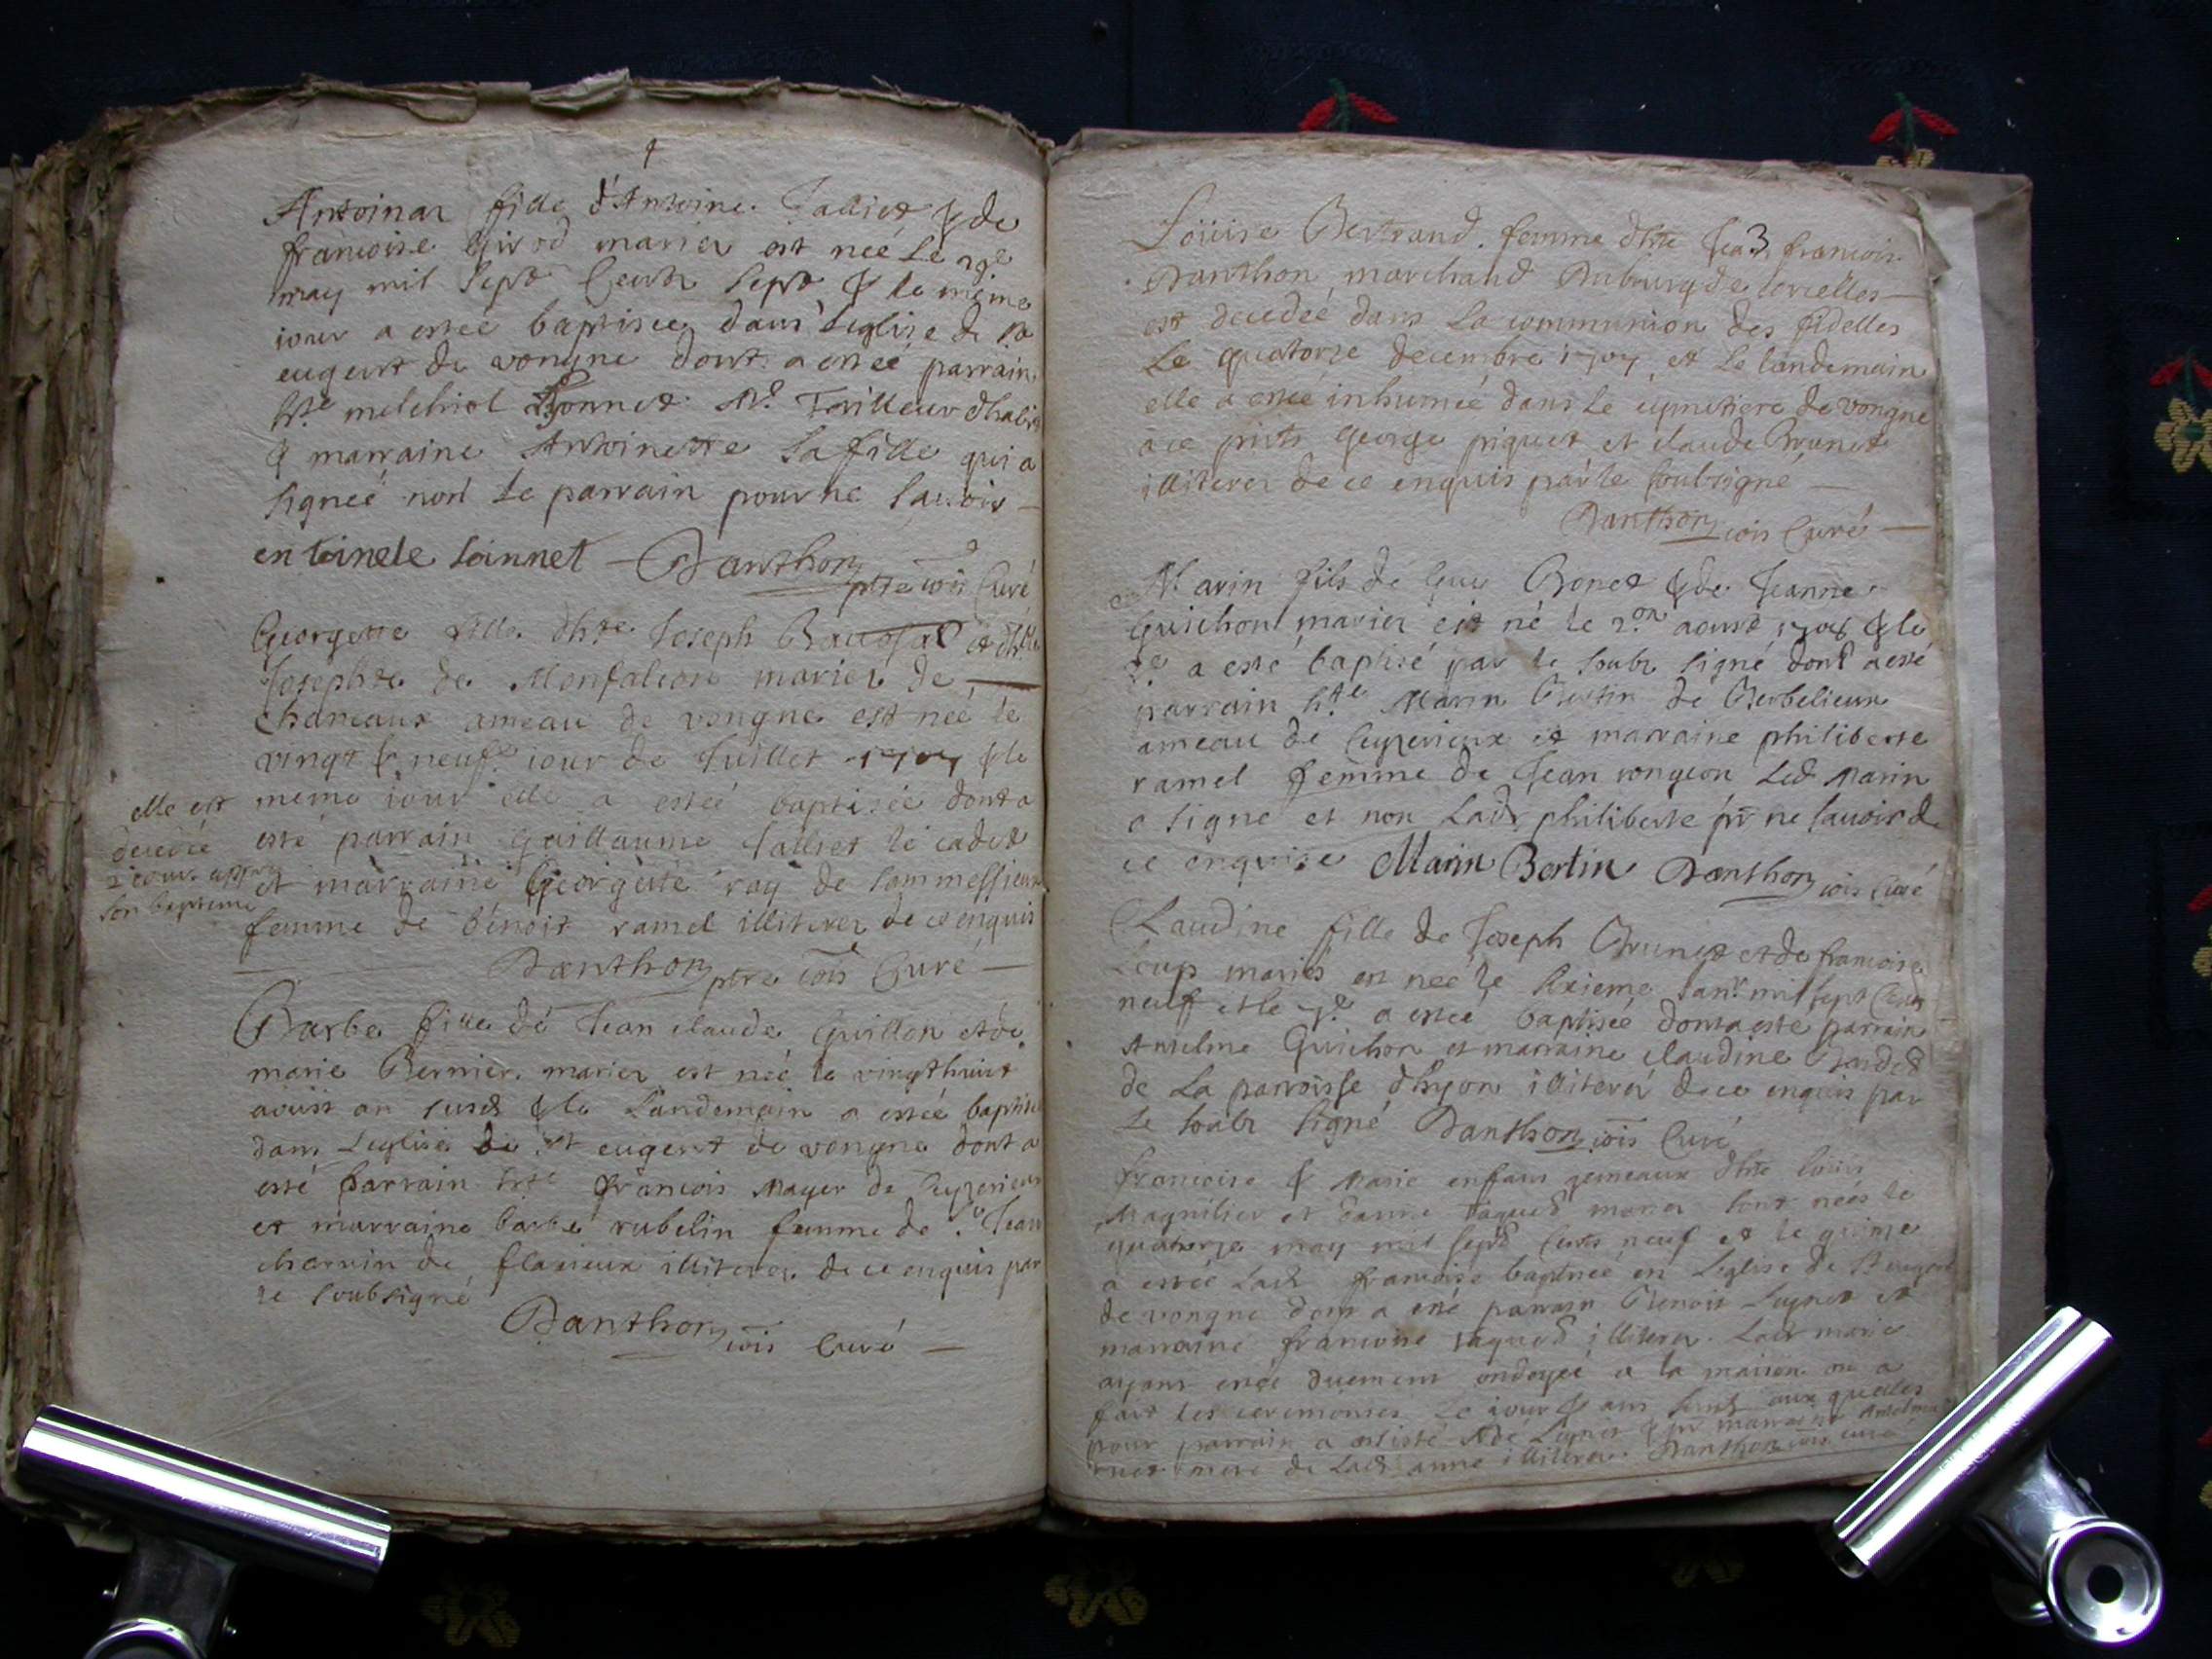 Antoinar fille d'Antoine Talliet & de
francoise Girod mariez est née le 29e
may mil sept Cents sept & le meme
iour a esteé baptisee dans leglise de St
eugent de vongne dont a esteé parrain
hte melchiol Md Tailleur dhabit
& marraine Antoinette sa fille qui a
signeé non le parrain pour ne savoir
en toinete soinnet Danthon
ptre Curé
Georgette fille dhte Joseph et
Josephte de Monfalcon mariez de
Chaneaux ameau de vongne est neé le
vingt & neufe iour de Juillet 1707 & le
meme iour elle a esteé baptisée dont a
esté parrain Guillaume Talliet le cadet
et marraine Georgette ray de
femme de benoit ramel illiterez de ce enquis
elle est
decedée
2 iours apprez
son bapteme
Danthon ptre Curé
Barbe fille de Jean claude Guillon et de
marie Bernier mariez est neé le vingthuict
aoust an susd & le Landemain a esteé baptisee
dans Leglise de St eugent de vongne dont a
esté parrain hte francois Mayer de Ceyzerieux
et marraine barbe rubelin femme de Sr Jean
charvin de flaxieux illiterez de ce enquis par
le soubsigné
Danthon Curé
Loüise Bertrand femme dhte Jean francois
Danthon marchand Dubourg de
est decedeé dans La communion des fidelles
Le quatorze decembre 1707 et le landemain
elle a esteé inhumeé dans le cymetiere de vongne
a ce pnts George piquet et claude Brunet
illiterez de ce enquis par le soubsigné
Danthon Curé
Marin fils de Guy Bonet & de Jeanne
Guichon mariez est né le 2on aoust & le
a esté baptisé par le soubz signé dont a esté
parrain hte Marin Bertin de Berbelieux
ameau de Ceyzerieux et marraine philiberte
ramel femme de Jean vongeon Led Marin
a signé et non Lade philiberte pr ne savoir de
ce enquise Marin Bertin Danthon Curé
Claudine fille de Joseph Brunet et de francoise
Loup mariés est neé le sixieme Janr mil sept Cents
neuf et le 7e a esteé baptisée dont a esté parrain
Anselme Guichon et marraine claudine
de La parroisse illiterez de ce enquis par
Le soubz signé Danthon Curé
francoise & Marie enfans gemeaux dhte loüis
Magnilier et mariez sont neés le
quatorze may mil sept Cents neuf et le
a esteé Lade francoise baptiseé en Leglise de St eugent
de vongne dont a esté parrain Benoit et
marraine francoise illiterez Lade marie
ayant esteé duement ondoyeé a la maison on a
fait les ceremonies Le iour & an susd aux quelles
pour parrain a assisté & pr marraine
mere de Lade anne illiterez Danthon curé